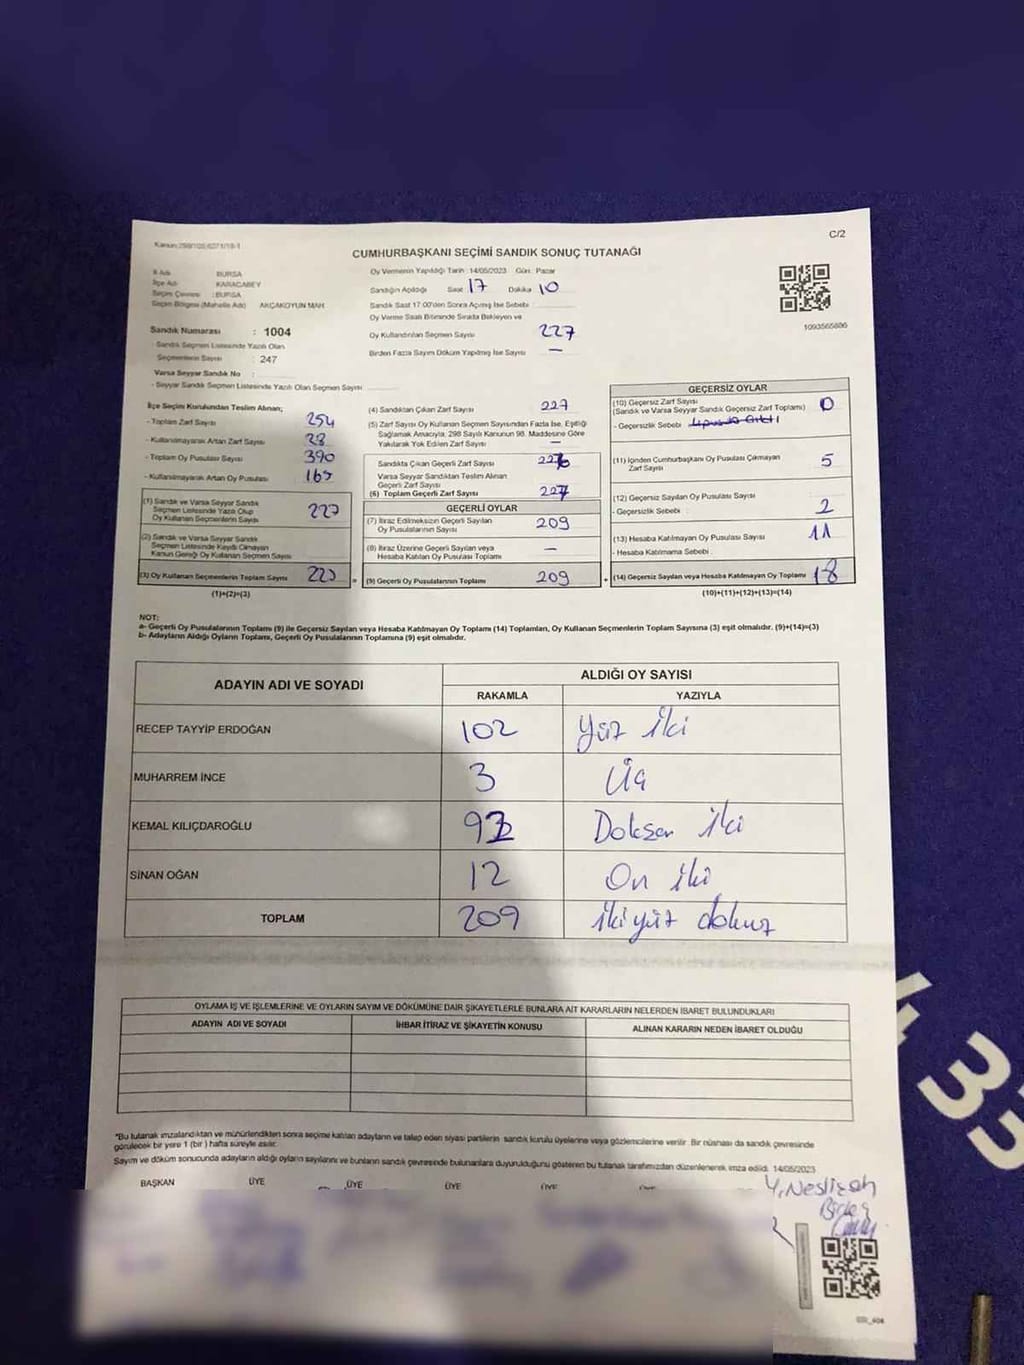 C/2
CUMHURBAŞKANI SEÇİMİ SANDIK SONUÇ TUTANAĞI
İl Adı : BURSA
İlçe Adı : KARACABEY
Seçim Çevresi : BURSA
Seçim Bölgesi (Mahalle Adı) AKÇAKOYUN MAH.
Sandık Numarası : 1004
- Sandık Seçmen Listesinde Yazılı Olan
Seçmenlerin Sayısı : 247
Varsa Seyyar Sandık No :
- Seyyar Sandık Seçmen Listesinde Yazılı Olan Seçmen Sayısı
Oy Vermenin Yapıldığı Tarih : 14/05/2023 Gün : Pazar
Sandığın Açıldığı Saat 17 Dakika 10
Sandık Saat 17:00'den Sonra Açılmış İse Sebebi :
Oy Verme Saati Bitiminde Sırada Bekleyen ve
Oy Kullandırılan Seçmen Sayısı 227
Birden Fazla Sayım Döküm Yapılmış İse Sayısı —
1093565886
İlçe Seçim Kurulundan Teslim Alınan;
- Toplam Zarf Sayısı 254
- Kullanılmayarak Artan Zarf Sayısı
- Toplam Oy Pusulası Sayısı 390
- Kullanılmayarak Artan Oy Pusulası
(1) Sandık ve Varsa Seyyar Sandık
Seçmen Listesinde Yazılı Olup
Oy Kullanan Seçmenlerin Sayısı 227
(2) Sandık ve Varsa Seyyar Sandık
Seçmen Listesinde Kayıtlı Olmayan
Kanun Gereği Oy Kullanan Seçmen Sayısı
(3) Oy Kullanan Seçmenlerin Toplam Sayısı
(1)+(2)=(3)
(4) Sandıktan Çıkan Zarf Sayısı 227
(5) Zarf Sayısı Oy Kullanan Seçmen Sayısından Fazla İse, Eşitliği
Sağlamak Amacıyla, 298 Sayılı Kanunun 98. Maddesine Göre
Yakılarak Yok Edilen Zarf Sayısı —
Sandıkta Çıkan Geçerli Zarf Sayısı
Varsa Seyyar Sandıktan Teslim Alınan
Geçerli Zarf Sayısı
(6) Toplam Geçerli Zarf Sayısı 227
GEÇERLİ OYLAR
(7) İtiraz Edilmeksizin Geçerli Sayılan
Oy Pusulalarının Sayısı 209
(8) İtiraz Üzerine Geçerli Sayılan veya
Hesaba Katılan Oy Pusulası Toplamı —
(9) Geçerli Oy Pusulalarının Toplamı 209
GEÇERSİZ OYLAR
(10) Geçersiz Zarf Sayısı
(Sandık ve Varsa Seyyar Sandık Geçersiz Zarf Toplamı) 0
- Geçersizlik Sebebi :
(11) İçinden Cumhurbaşkanı Oy Pusulası Çıkmayan
Zarf Sayısı 5
(12) Geçersiz Sayılan Oy Pusulası Sayısı
- Geçersizlik Sebebi : 2
(13) Hesaba Katılmayan Oy Pusulası Sayısı 11
- Hesaba Katılmama Sebebi :
(14) Geçersiz Sayılan veya Hesaba Katılmayan Oy Toplamı 18
(10)+(11)+(12)+(13)=(14)
NOT:
a- Geçerli Oy Pusulalarının Toplamı (9) ile Geçersiz Sayılan veya Hesaba Katılmayan Oy Toplamı (14) Toplamları, Oy Kullanan Seçmenlerin Toplam Sayısına (3) eşit olmalıdır. (9)+(14)=(3)
b- Adayların Aldığı Oyların Toplamı, Geçerli Oy Pusulalarının Toplamına (9) eşit olmalıdır.
ADAYIN ADI VE SOYADI ALDIĞI OY SAYISI
RAKAMLA YAZIYLA
RECEP TAYYİP ERDOĞAN 102 Yüz iki
MUHARREM İNCE 3 Üç
KEMAL KILIÇDAROĞLU 92 Doksan iki
SİNAN OĞAN 12 On iki
TOPLAM 209 ikiyüz dokuz
OYLAMA İŞ VE İŞLEMLERİNE VE OYLARIN SAYIM VE DÖKÜMÜNE DAİR ŞİKAYETLERLE BUNLARA AİT KARARLARIN NELERDEN İBARET BULUNDUKLARI
ADAYIN ADI VE SOYADI İHBAR İTİRAZ VE ŞİKAYETİN KONUSU ALINAN KARARIN NEDEN İBARET OLDUĞU
*Bu tutanak imzalandıktan ve mühürlendikten sonra seçime katılan adayların ve talep eden siyasi partilerin sandık kurulu üyelerine veya gözlemcilerine verilir. Bir nüshası da sandık çevresinde
görülecek bir yere 1 (bir) hafta süreyle asılır.
Sayım ve döküm sonucunda adayların aldığı oyların sayılarını ve bunların sandık çevresinde bulunanlara duyurulduğunu gösteren bu tutanak tarafımızdan düzenlenerek imza edildi. 14/05/2023
BAŞKAN ÜYE ÜYE ÜYE ÜYE
Neslişah